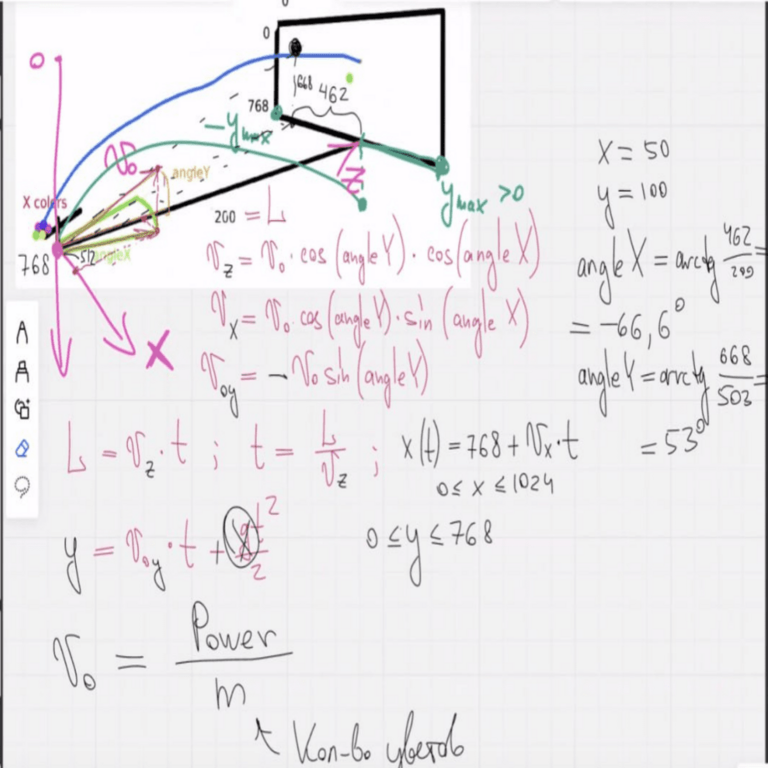 0
0
768
668
462
-y max
V₀
angleY
X colors
z
y max >0
768
512
angleX
200 = L
X
V_z = V₀ · cos (angle Y) · cos(angle X)
V_x = V₀ · cos(angle Y) · sin (angle X)
V_oy = - V₀ sin (angle Y)
x = 50
y = 100
angle X = arctg 462/299 =
= -66,6°
angle Y = arctg 668/503 =
= 53°
L = V_z · t ; t = L/V_z ; x(t) = 768 + V_x · t
0 ≤ x ≤ 1024
y = V_oy · t + gt²/2
0 ≤ y ≤ 768
V₀ = Power/m
Кол-во цветов